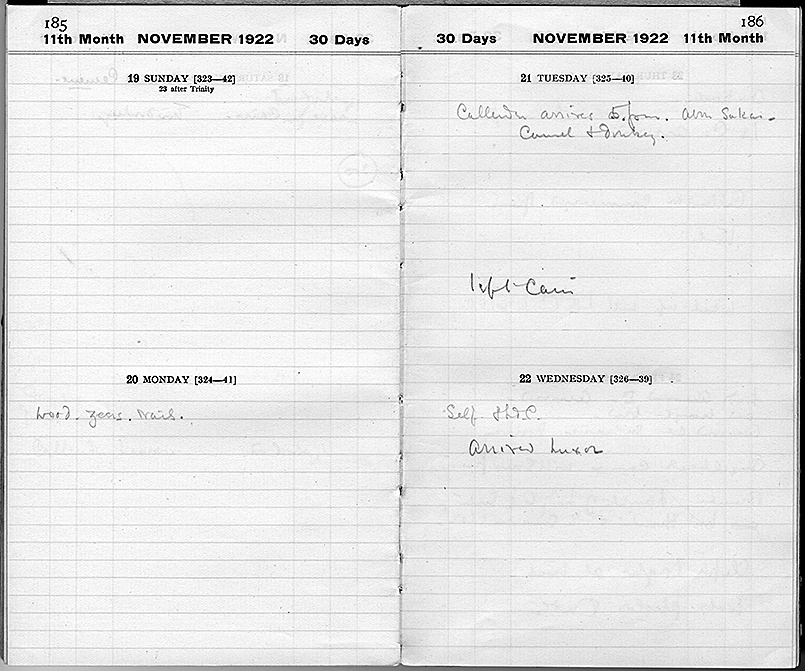 185
11th Month NOVEMBER 1922 30 Days
19 SUNDAY [323—42]
23 after Trinity
20 MONDAY [324—41]
Wood. zeers. Nails.
186
30 Days NOVEMBER 1922 11th Month
21 TUESDAY [325—40]
Callender arrives 5. p.m. Abu Sakar
Camel & Donkey.
left Cairo
22 WEDNESDAY [326—39]
Self &
Arrived Luxor